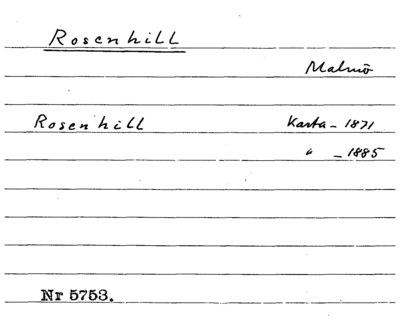 Rosenhill
Malmö
Rosenhill Karta - 1871
" - 1885
Nr 5753.